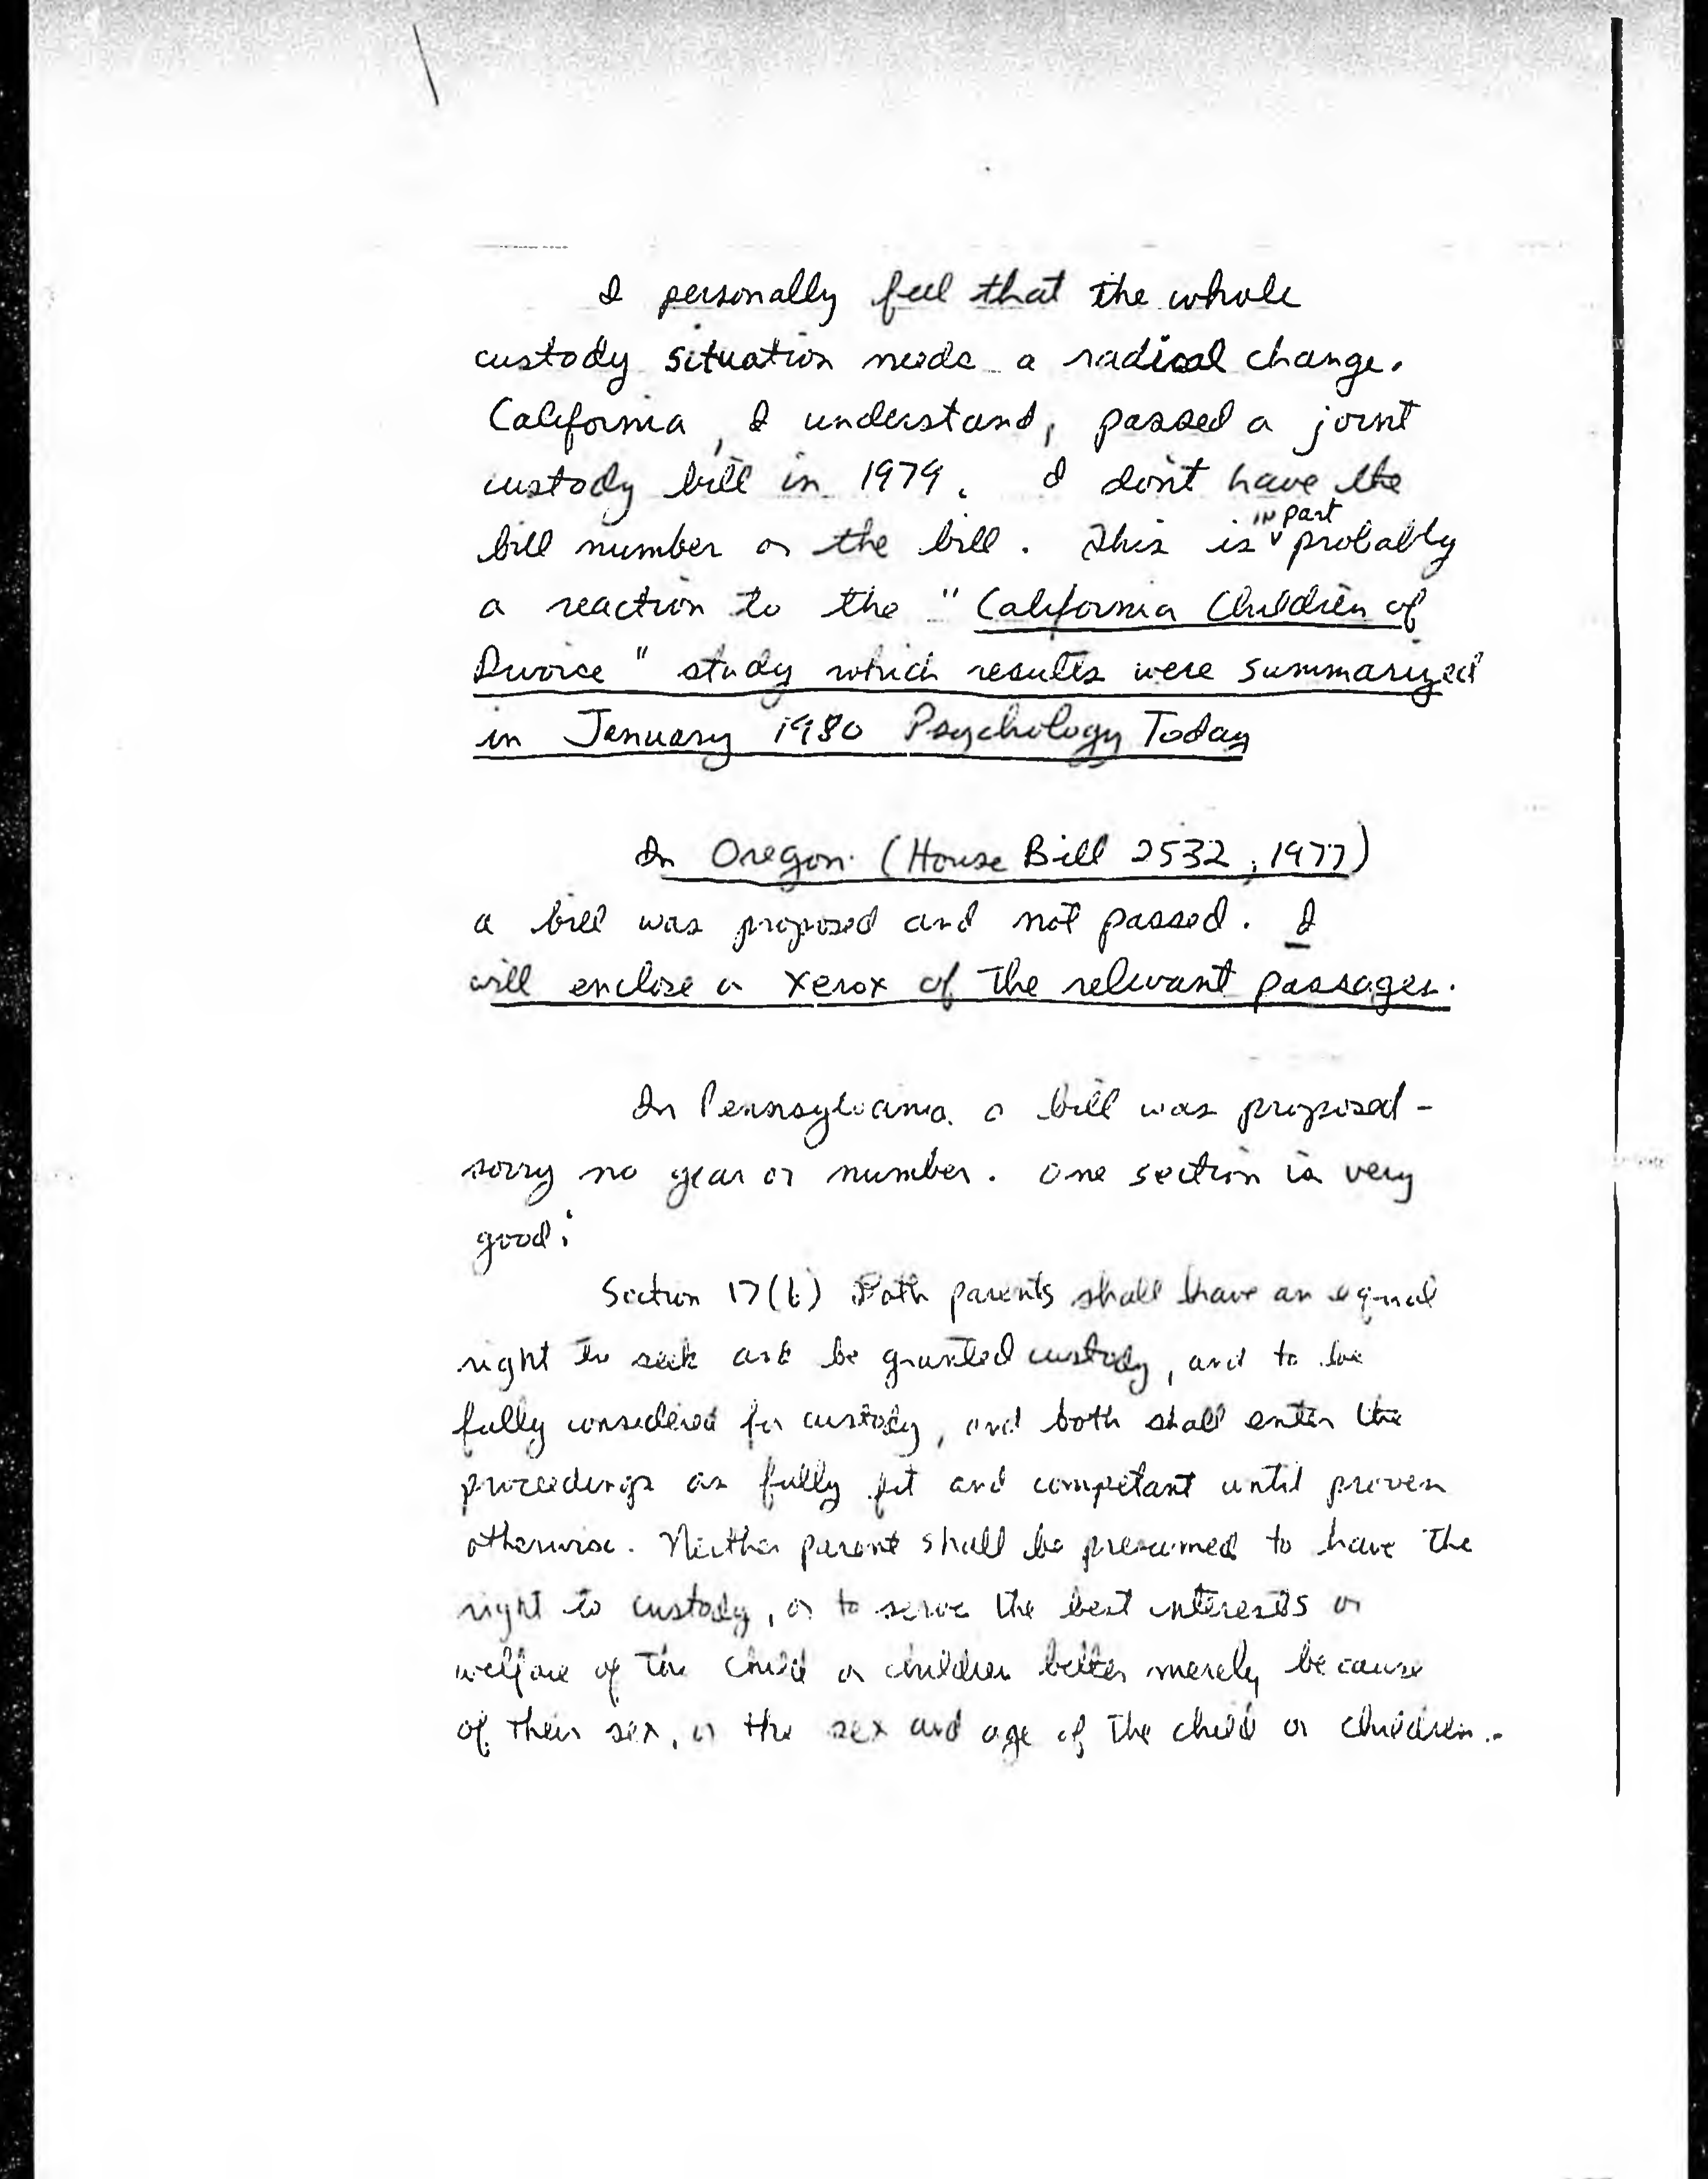 I personally feel that the whole
custody situation needs a radical change.
California, I understand, passed a joint
custody bill in 1979. I don't have the
bill number or the bill. This is in part probably
a reaction to the "California Children of
Divorce" study which results were summarized
in January 1980 Psychology Today
In Oregon (House Bill 2532, 1977)
a bill was proposed and not passed. I
will enclose a xerox of the relevant passages.
In Pennsylvania a bill was proposed -
sorry no year or number. One section is very
good:
Section 17(b) Both parents shall have an equal
right to seek and be granted custody, and to be
fully considered for custody, and both shall enter the
proceedings as fully fit and competant until proven
otherwise. Neither parent shall be presumed to have the
right to custody, or to serve the best interests or
welfare of the child or children better merely because
of their sex, or the sex and age of the child or children.